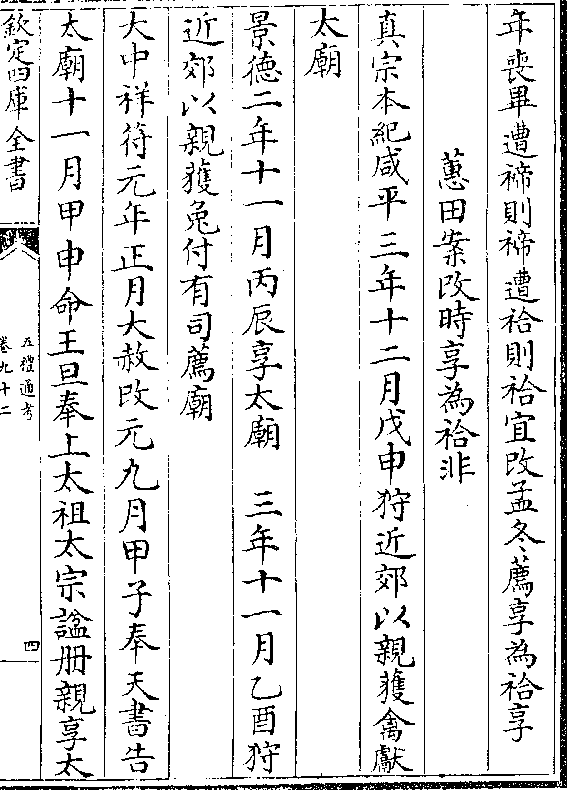 年喪畢遭禘則禘遭祫則祫宜改孟冬薦享為祫享
蕙田案改時享為祫非
真宗本紀咸平三年十二月戊申狩近郊以親獲禽獻
太廟
景德二年十一月丙辰享太廟　三年十一月乙酉狩
近郊以親獲兔付有司薦廟
大中祥符元年正月大赦改元九月甲子奉天書告
太廟十一月甲申命王旦奉上太祖太宗諡冊親享太
欽定四庫全書
五禮通考
卷九十二
四